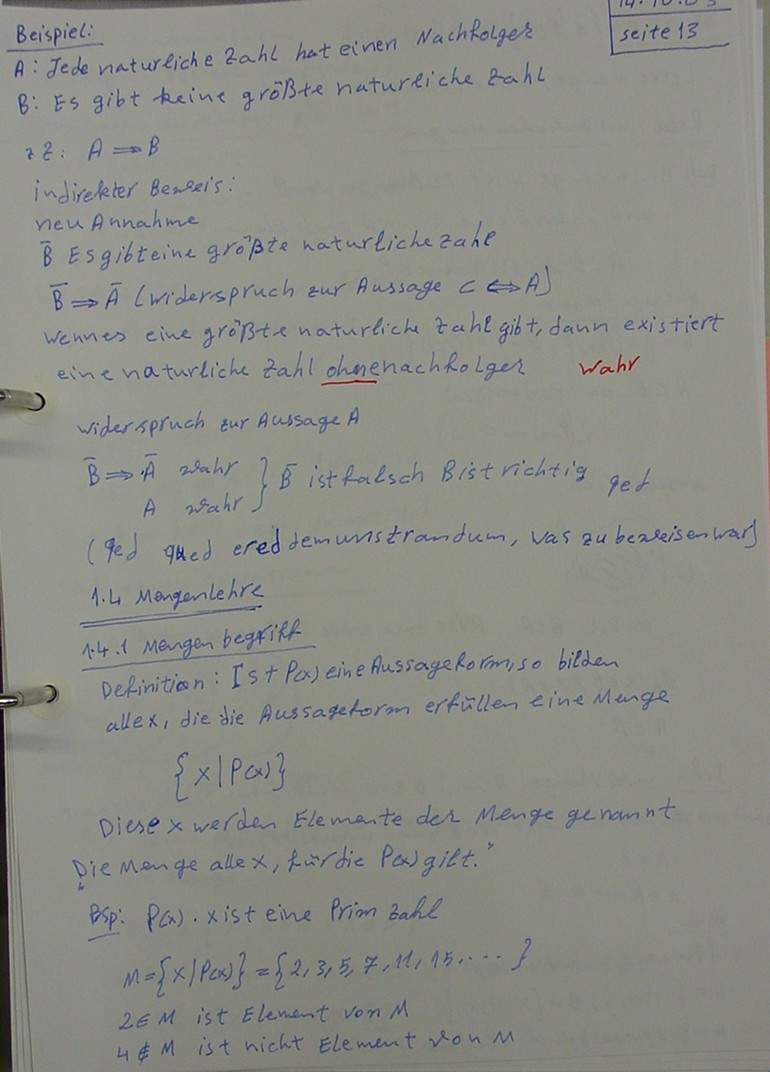 seite 13
Beispiel:
A: Jede naturliche Zahl hat einen Nachfolger
B: Es gibt keine größte naturliche Zahl
zZ: A ⟹ B
indirekter Beweis:
neu Annahme
B̅ Es gibt eine größte naturliche zahl
B̅ ⟹ A̅ (widerspruch zur Aussage C ⟺ A)
wenn es eine größte naturliche Zahl gibt, dann existiert
eine naturliche Zahl ohne nachfolger wahr
widerspruch zur Aussage A
B̅ ⟹ A̅ wahr
A wahr } B̅ ist falsch B ist richtig qed
(qed qued ered demunstrandum, was zu beweisen war)
1.4 Mengenlehre
1.4.1 Mengen begriff
Definition: Ist P(x) eine Aussageform, so bilden
alle x, die die Aussageform erfüllen eine Menge
{x|P(x)}
Diese x werden Elemente der Menge genannt
"Die Menge alle x, für die P(x) gilt."
Bsp: P(x). x ist eine Prim zahl
M={x|P(x)} = {2, 3, 5, 7, 11, 15, ...}
2∈M ist Element von M
4∉M ist nicht Element von M